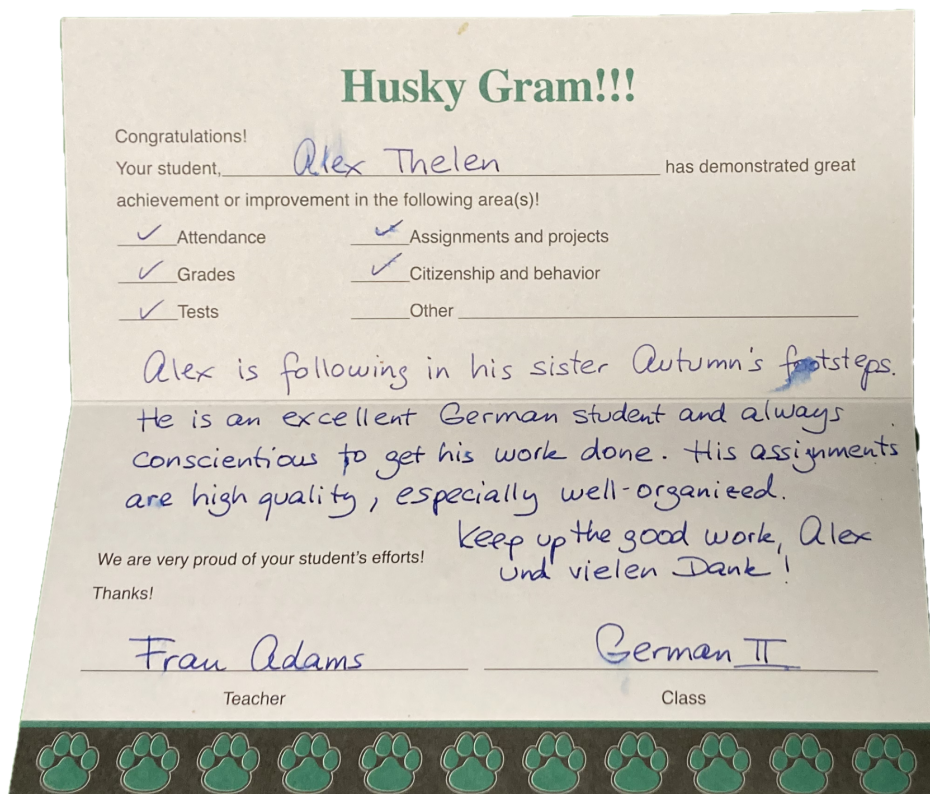 Husky Gram!!!
Congratulations!
Your student, Alex Thelen has demonstrated great
achievement or improvement in the following area(s)!
✓ Attendance ✓ Assignments and projects
✓ Grades ✓ Citizenship and behavior
✓ Tests Other
Alex is following in his sister Autumn's footsteps.
He is an excellent German student and always
conscientious to get his work done. His assignments
are high quality, especially well-organized.
Keep up the good work, Alex
und vielen Dank!
We are very proud of your student's efforts!
Thanks!
Frau Adams German II
Teacher Class